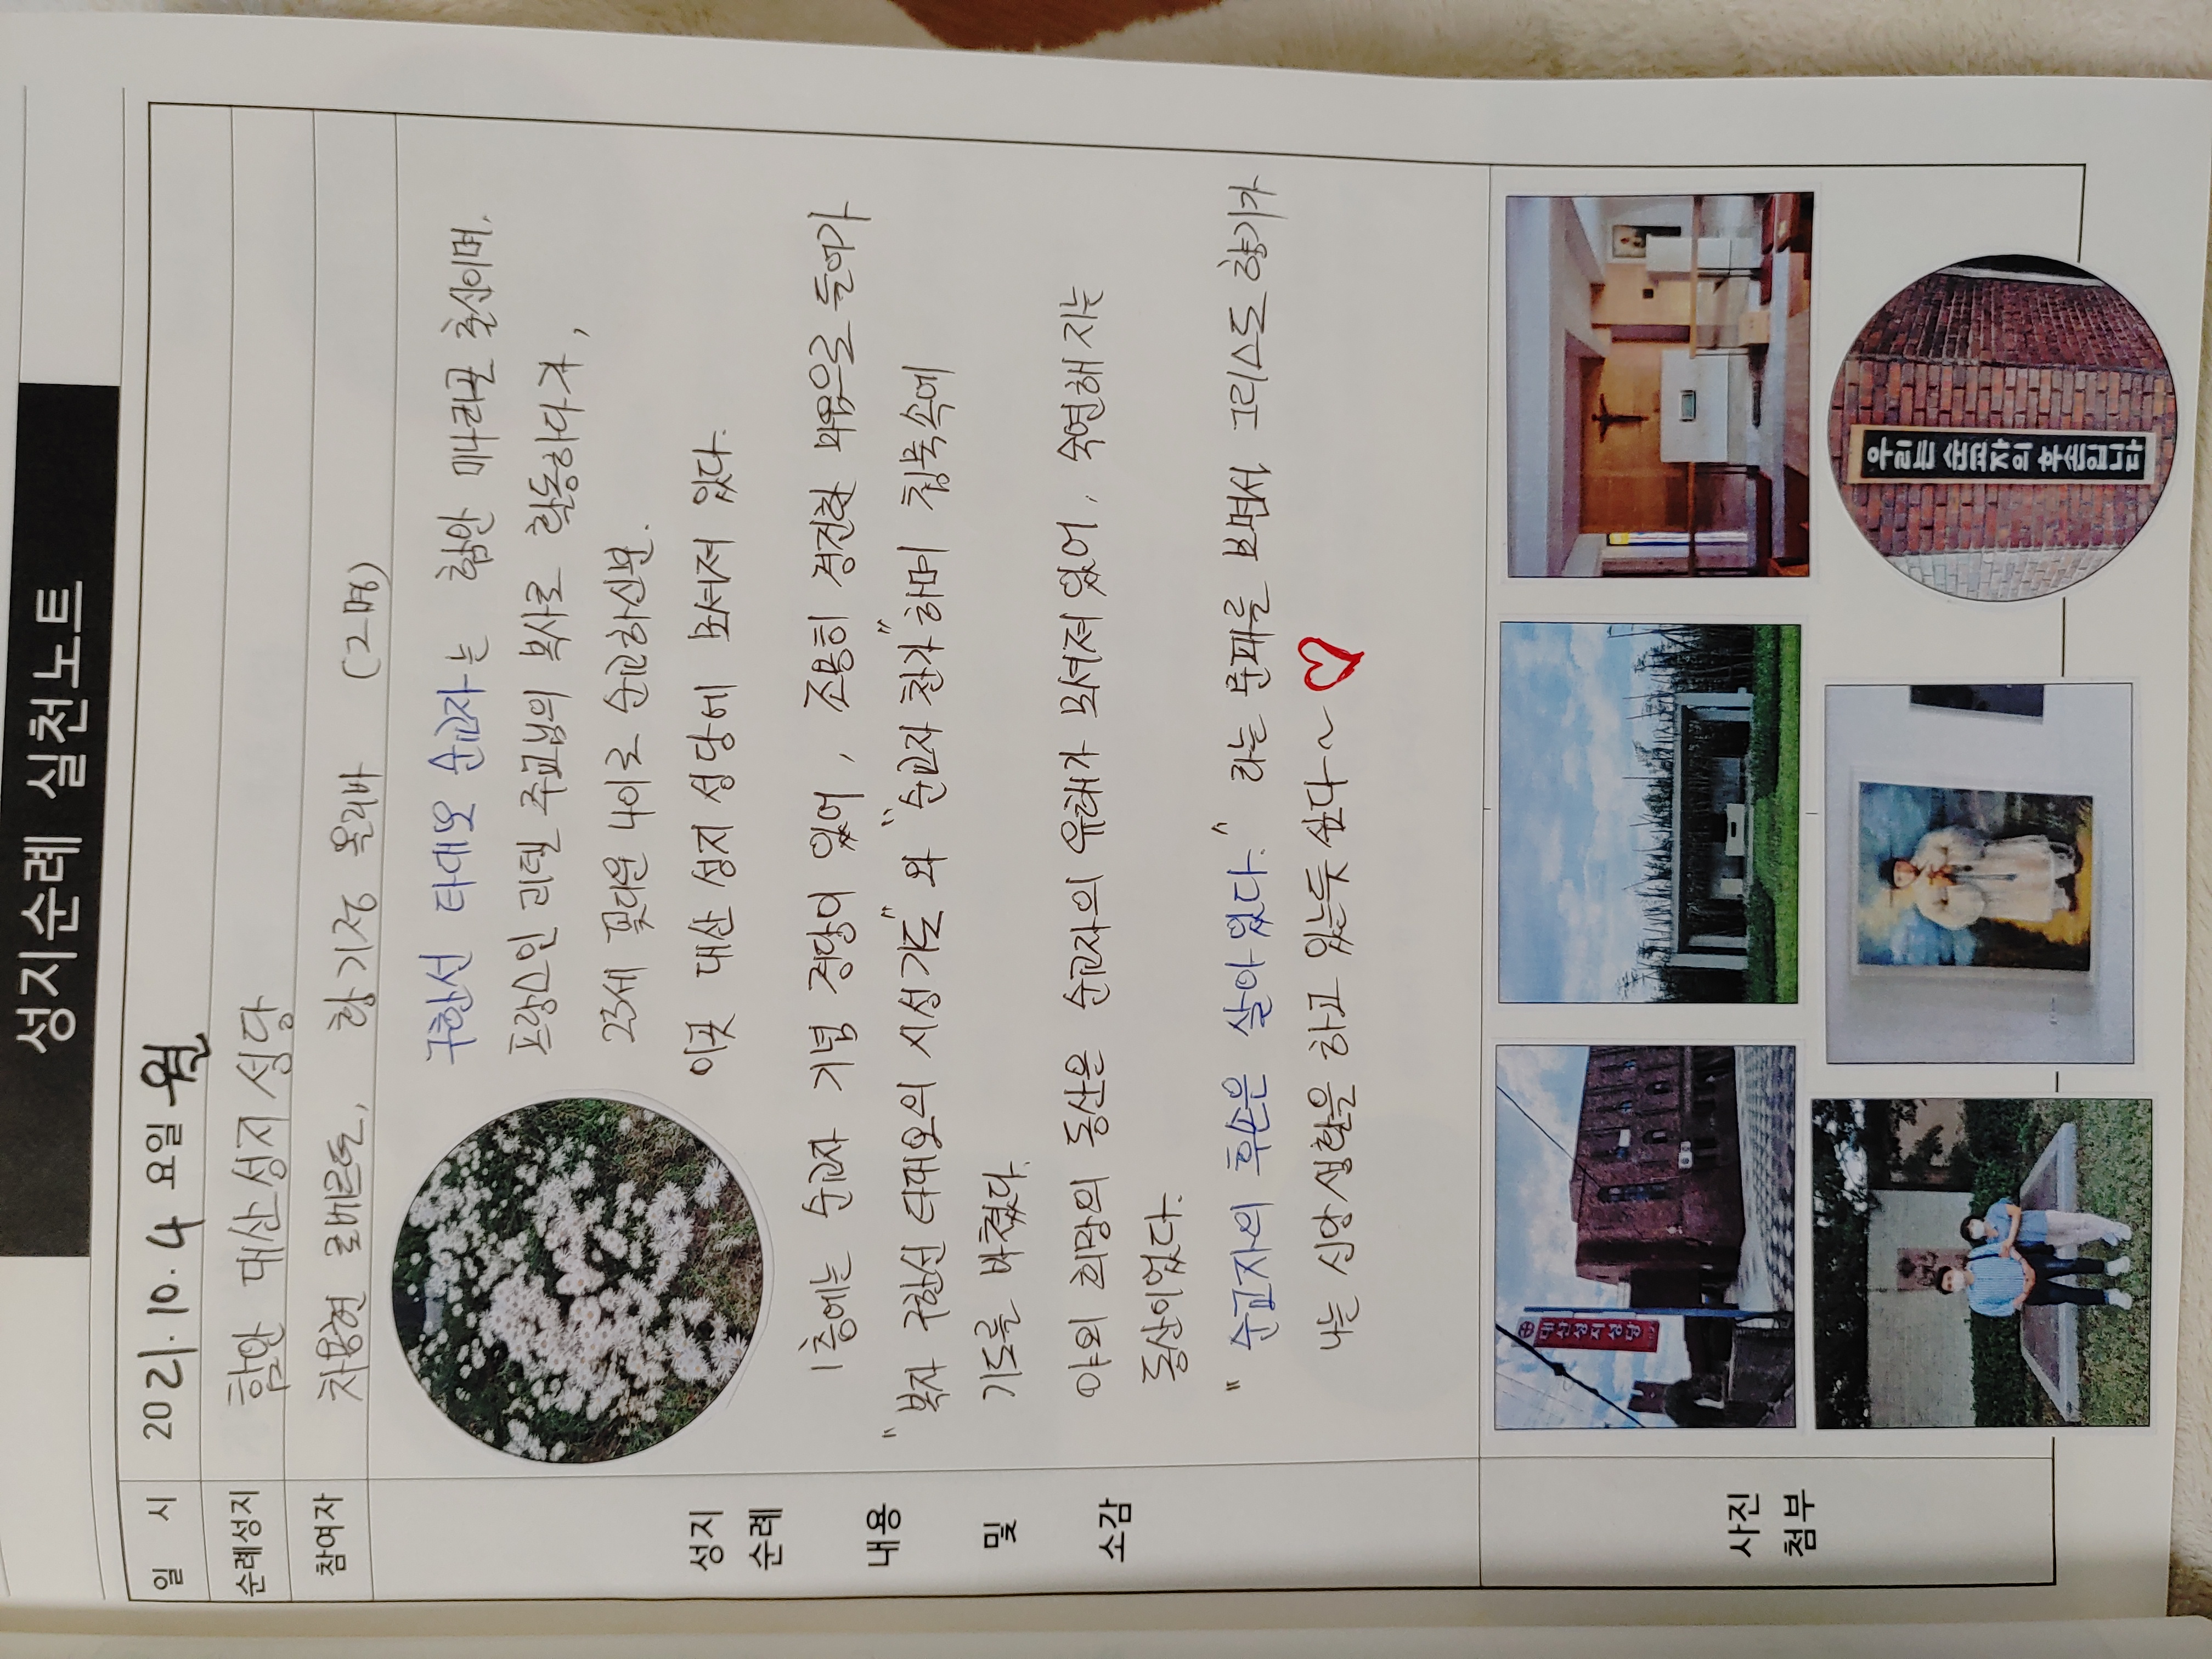 성지순례 실천노트
일 시 2021. 10. 4 요일 월
순례성지 함안 대산성지 성당
참여자 차용현 로베르또, 황기정 올리바 (2명)
성지
순례
내용
및
소감
구한선 타대오 순교자는 함안 미나리골 출신이며,
프랑스인 리델 주교님의 복사로 활동하다가,
23세 꽃다운 나이로 순교하신분.
이곳 대산 성지 성당에 모셔져 있다.
1층에는 순교자 기념 경당이 있어, 조용히 경건한 마음으로 들어가
"복자 구한선 타대오의 시성기도"와 "순교자 찬가" 하며 침묵속에
기도를 바쳤다.
야외 희망의 동산은 순교자의 유해가 모셔져 있어, 숙연해 지는
동산이었다.
"순교자의 후손은 살아있다." 라는 문패를 보면서, 그리스도 향기가
나는 신앙생활을 하고 있는듯 싶다~♡
사진
첨부
대산성지성당
우리는 순교자의 후손입니다